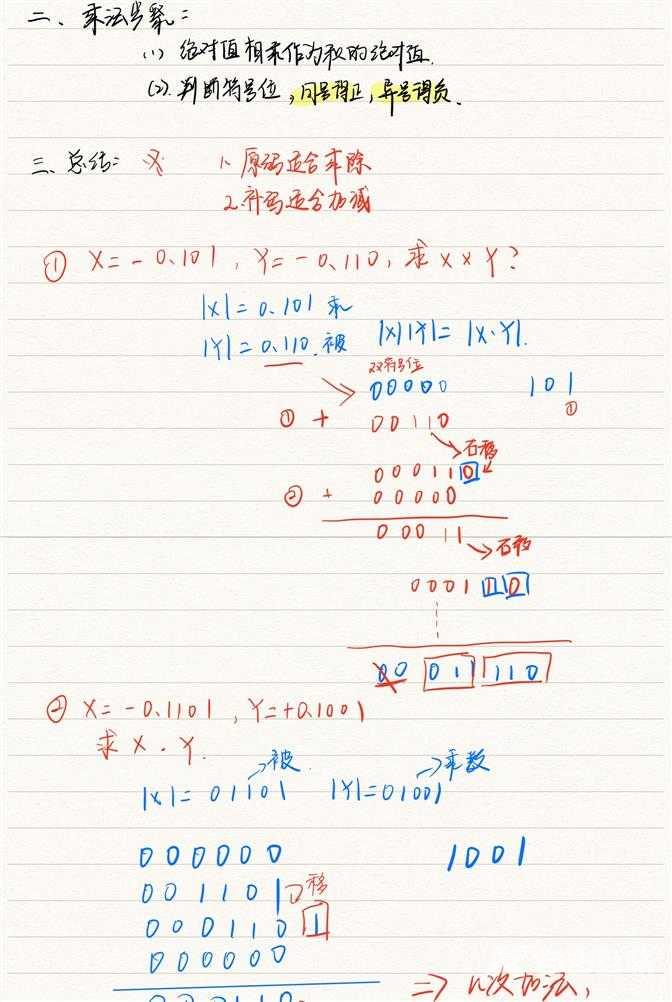 二、乘法步骤：
(1) 绝对值相乘作为积的绝对值.
(2). 判断符号位，同号得正，异号得负.
三、总结：
1. 原码适合乘除
2. 补码适合加减
① X=-0.101，Y=-0.110，求 X×Y?
|X|=0.101 乘
|Y|=0.110.被 |X||Y|=|X·Y|.
双符号位
00000 101
① + 00110 ①
右移
000110
② + 00000
00011
右移
000110
00 011110
② X=-0.1101，Y=+0.1001
求 X·Y.
被 乘数
|X|=01101 |Y|=01001
000000 1001
001101 移
0001101
000000
⇒ n次加法，